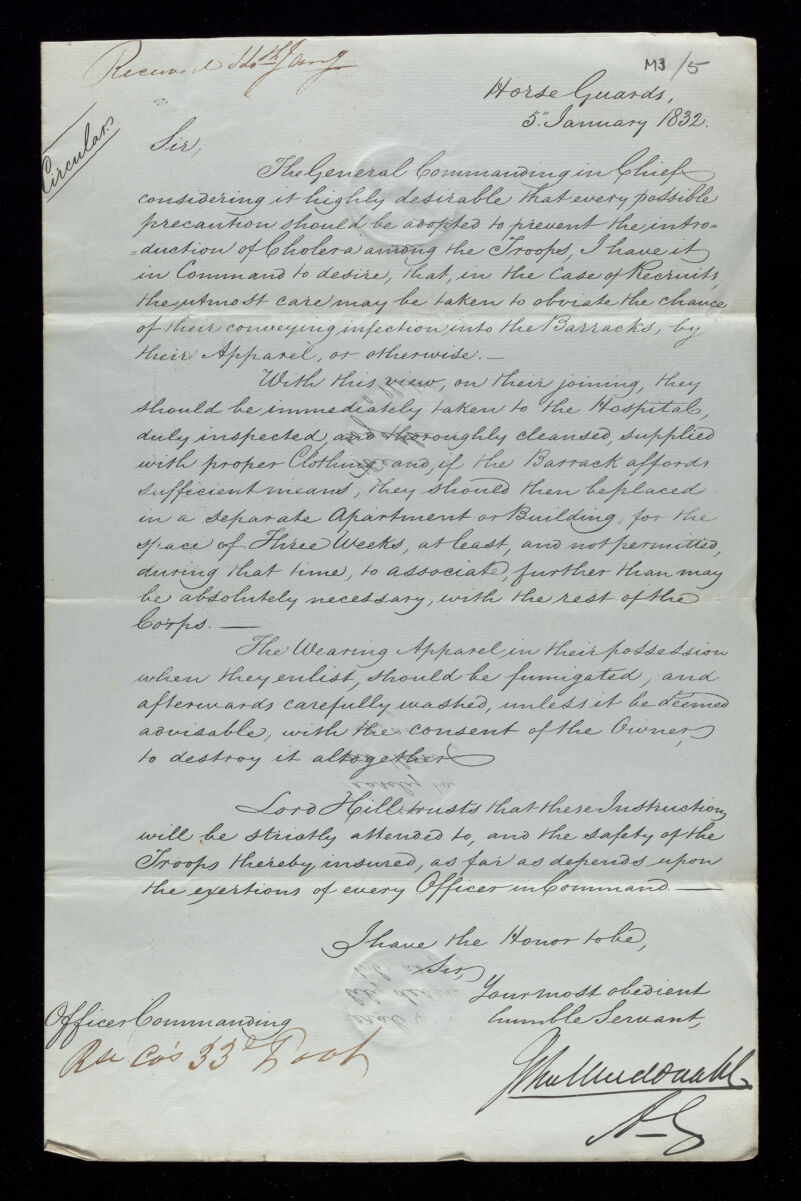 Received 11th Jany
M3/5
Horse Guards,
5" January 1832.
Circular.
Sir,
The General Commanding in Chief
considering it highly desirable that every possible
precaution should be adopted to prevent the intro=
=duction of Cholera among the Troops, I have it
in Command to desire, that, in the case of Recruits,
the utmost care may be taken to obviate the chance
of their conveying infection into the Barracks, by
their Apparel, or otherwise. —
With this view, on their joining, they
should be immediately taken to the Hospital,
duly inspected and thoroughly cleansed, supplied
with proper Clothing and, if the Barrack affords
sufficient means, they should then be placed
in a separate Apartment or Building, for the
space of Three Weeks, at least, and not permitted,
during that time, to associate, further than may
be absolutely necessary, with the rest of the
Corps. —
The Wearing Apparel in their possession
when they enlist, should be fumigated, and
afterwards carefully washed, unless it be deemed
advisable, with the consent of the Owner,
to destroy it altogether
Lord Hill trusts that these Instructions
will be strictly attended to, and the safety of the
Troops thereby insured, as far as depends upon
the exertions of every Officer in Command. —
I have the Honor to be,
Sir,
Your most obedient
humble Servant,
Officer Commanding
Rse Co's 33d Foot
Jno Macdonald
A G